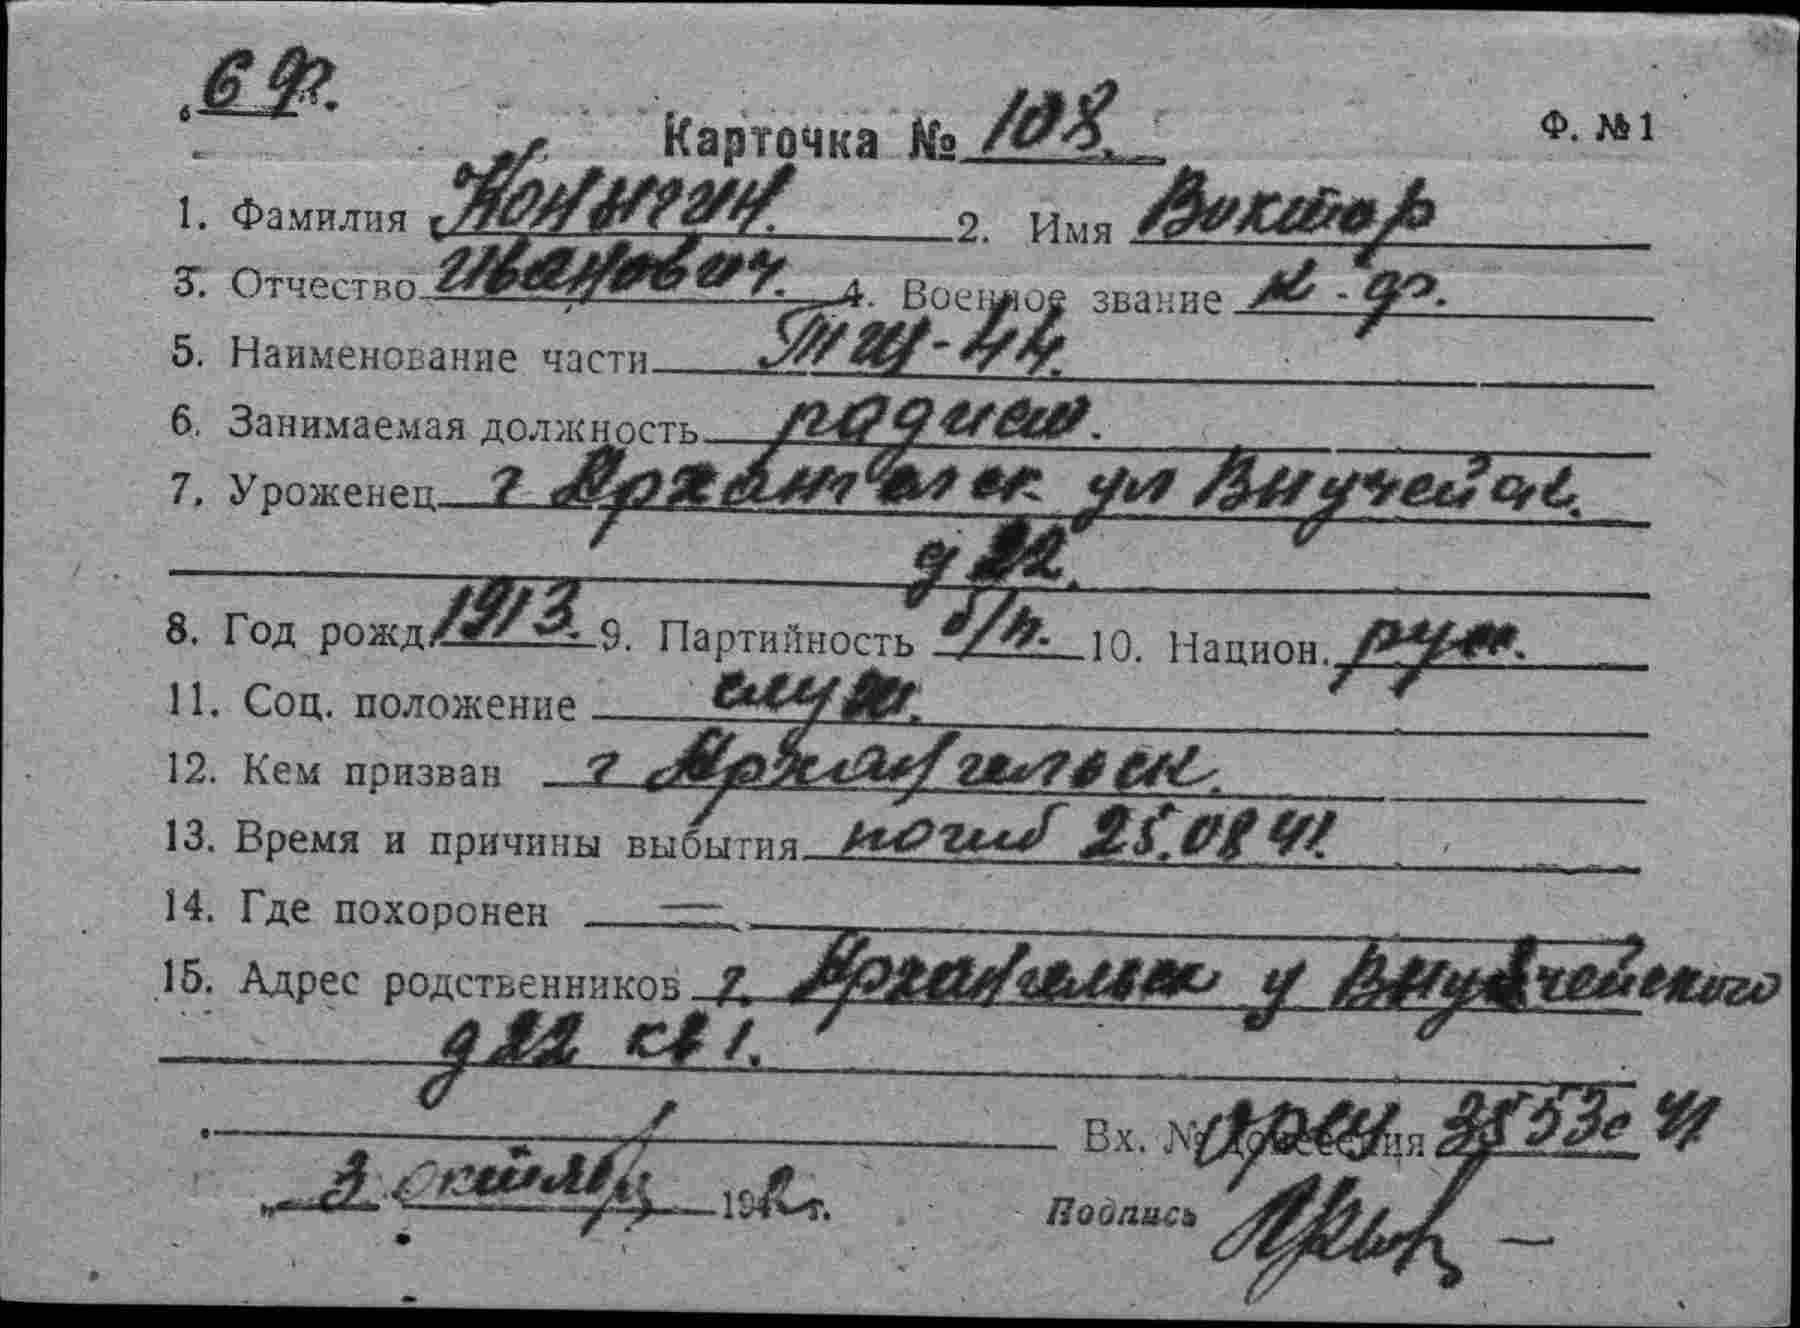 Карточка № 108. Ф. №1
1. Фамилия 2. Имя Виктор
3. Отчество Иванович. 4. Военное звание к-ф.
5. Наименование части Тщ-44.
6. Занимаемая должность радист.
7. Уроженец г Архангельск ул
д 22.
8. Год рожд. 1913. 9. Партийность б/п. 10. Национ. русск.
11. Соц. положение служ.
12. Кем призван г Архангельск.
13. Время и причины выбытия погиб 25.08 41.
14. Где похоронен —
15. Адрес родственников г. Архангельск у
д 22 кв 1.
Вх. №
194 г.
Подпись